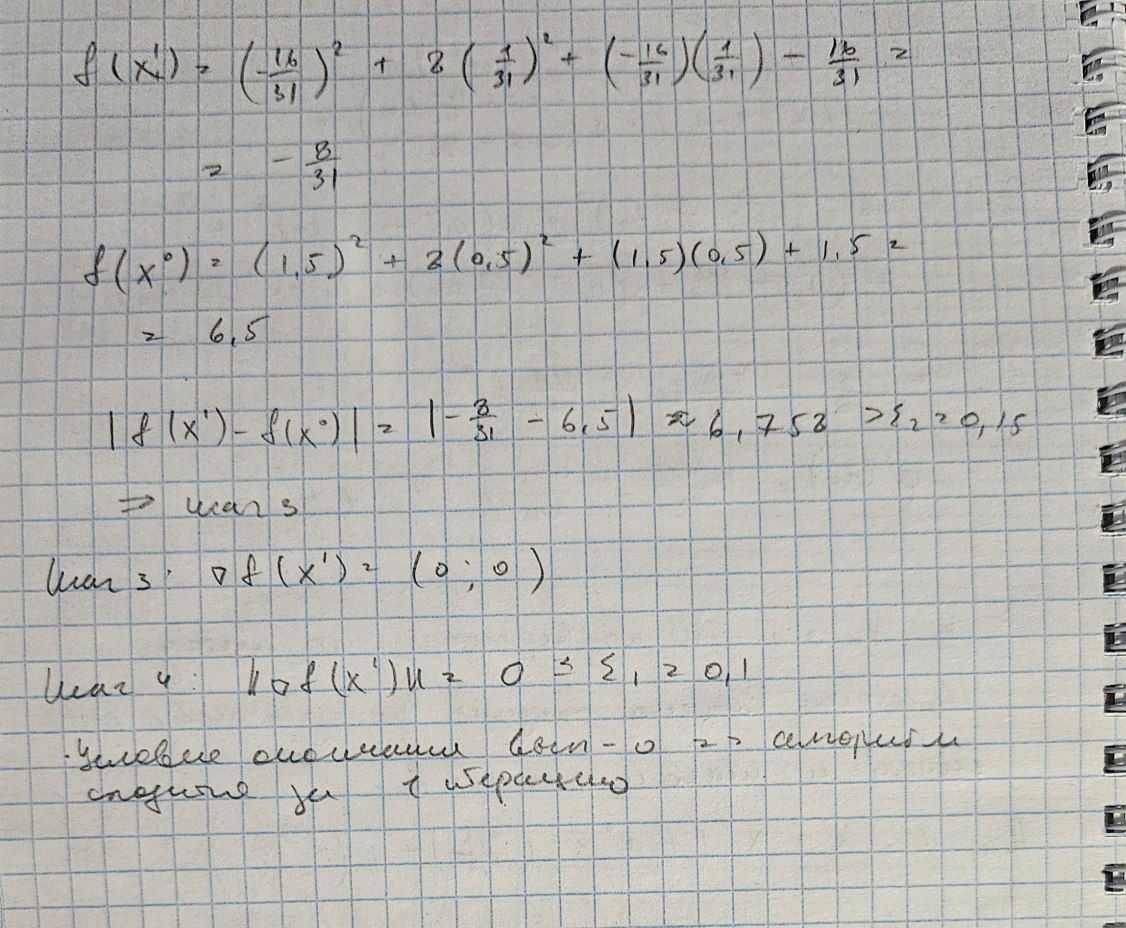 f(x¹) = (-16/31)² + 8(1/31)² + (-16/31)(1/31) - 16/31 =
= - 8/31
f(x⁰) = (1,5)² + 8(0,5)² + (1,5)(0,5) + 1,5 =
= 6,5
|f(x¹) - f(x⁰)| = |-8/31 - 6,5| ≈ 6,758 > ε₂ = 0,15
⇒ шаг 3
Шаг 3: ∇f(x¹) = (0; 0)
Шаг 4: ||∇f(x¹)|| = 0 ≤ ε₁ = 0,1
Условие окончания вып-о => алгоритм
сходится за 1 итерацию